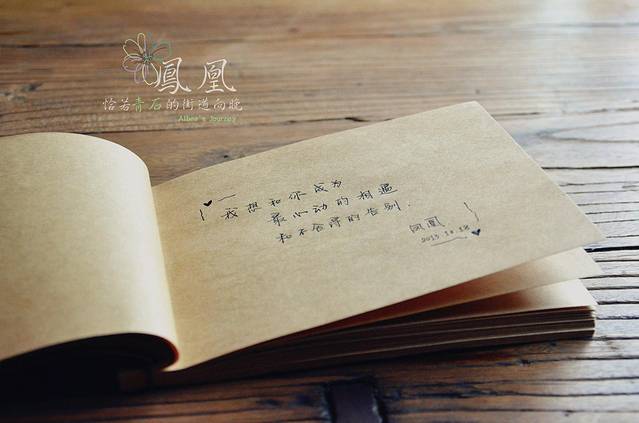 鳳凰
恰若青石的街道向晚
Albee's Journey
我想和你成为
最心动的相遇
和不舍得的告别.
凤凰
2013.10.18